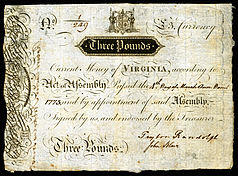 No. 249 £3. Currency
Three Pounds.
Current Money of VIRGINIA, according to
Act of Assembly Passed the 4th Day of March Anno Domi
1773, and by appointment of said Assembly,
Signed by us, and endorsed by the Treasurer.
Peyton Randolph
Three Pounds. John Blair